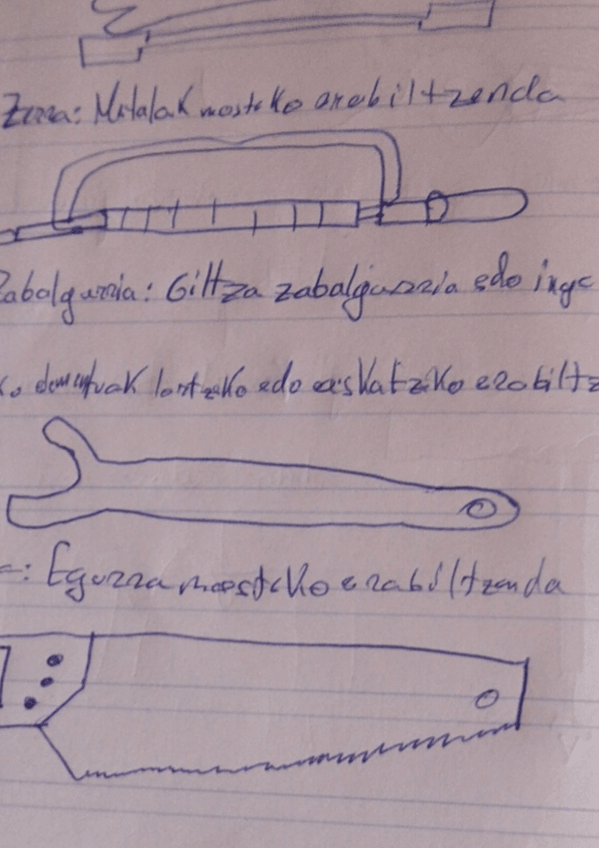 Zerra: Metalak mosteko erabiltzenda
Zabalgarria: Giltza zabalgarria edo inge
elementuak lortzeko edo askatzeko erabiltz
: Egurra moesteko erabiltzenda